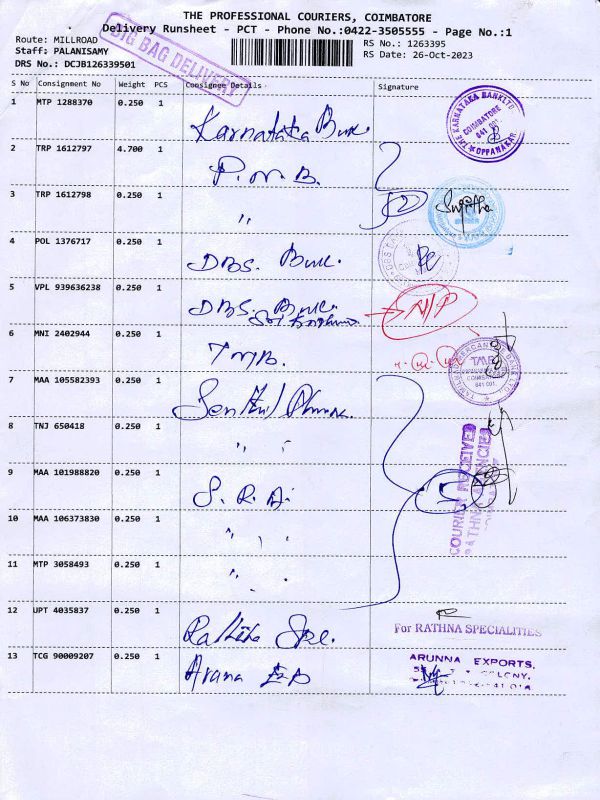 THE PROFESSIONAL COURIERS, COIMBATORE
Delivery Runsheet - PCT - Phone No.:0422-3505555 - Page No.:1
Route: MILLROAD
RS No.: 1263395
Staff: PALANISAMY
RS Date: 26-Oct-2023
DRS No.: DCJB126339501
BIG BAG DELIVERY
S No Consignment No Weight PCS Consignee Details Signature
1 MTP 1288370 0.250 1 Karnataka Bank
THE KARNATAKA BANK LTD
COIMBATORE
641 001
OPPANAKAR
2 TRP 1612797 4.700 1 P.N.B.
3 TRP 1612798 0.250 1 "
4 POL 1376717 0.250 1 DBS. Bank
5 VPL 939636238 0.250 1 DBS. Bank
6 MNI 2402944 0.250 1 TMB.
TMB
COIMBATORE
641 001
7 MAA 105582393 0.250 1
8 TNJ 650418 0.250 1 " "
COURIER RECEIVED
RATHNA AGENCIES
9 MAA 101988820 0.250 1
10 MAA 106373830 0.250 1 "
11 MTP 3058493 0.250 1 "
12 UPT 4035837 0.250 1
For RATHNA SPECIALITIES
13 TCG 90009207 0.250 1
ARUNNA EXPORTS,